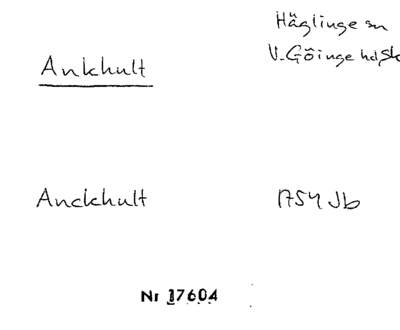 Häglinge sn
V. Göinge hd, Sk
Ankhult
Anckhult 1754 Jb
Nr 17604